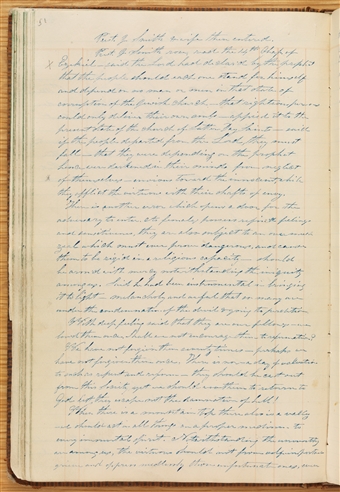 Prest J. Smith & wife then entered.
Prest J. Smith rose read the 14th Chap of
Ezekiel – said the Lord had declared by the prophet
that the people should each one stand for himself
and depend on no man or men in that state of
corruption of the Jewish church – that righteous persons
could only deliver their own souls – applied it to the
present state of the church of Latter Day Saints – said
if the people departed from the Lord, they must
fall – that they were depending on the prophet
hence were darkened in their minds from neglect
of themselves – envious toward the innocent, while
they afflict the virtuous with their shafts of envy.
There is another error which opens a door for the
adversary to enter. As females possess refined feelings
and sensitiveness, they are also subject to an
zeal which must ever prove dangerous, and cause
them to be rigid in a religious capacity – should
be arm'd with mercy notwithstanding the iniquity
among us. Said he had been instrumental in bringing
it to light – melancholy and awful that so many are
under the condemnation of the devil & going to perdition.
With deep feeling said that they are our fellows – we
loved them once. Shall we not encourage them to reformation?
We have not forgiven them seventy times – perhaps we
have not forgiven them once. There is now a day of salvation
to such as repent and reform – they should be cast out
from this Society, yet we should woo them to return to
God lest they escape not the damnation of hell!
When there is a mountain top there also is a valley –
we should act in all things on a proper medium – to
every immortal spirit. Notwithstanding the unworthy
are among us, the virtuous should not from self importance
grieve and oppress needlessly those unfortunate ones, even